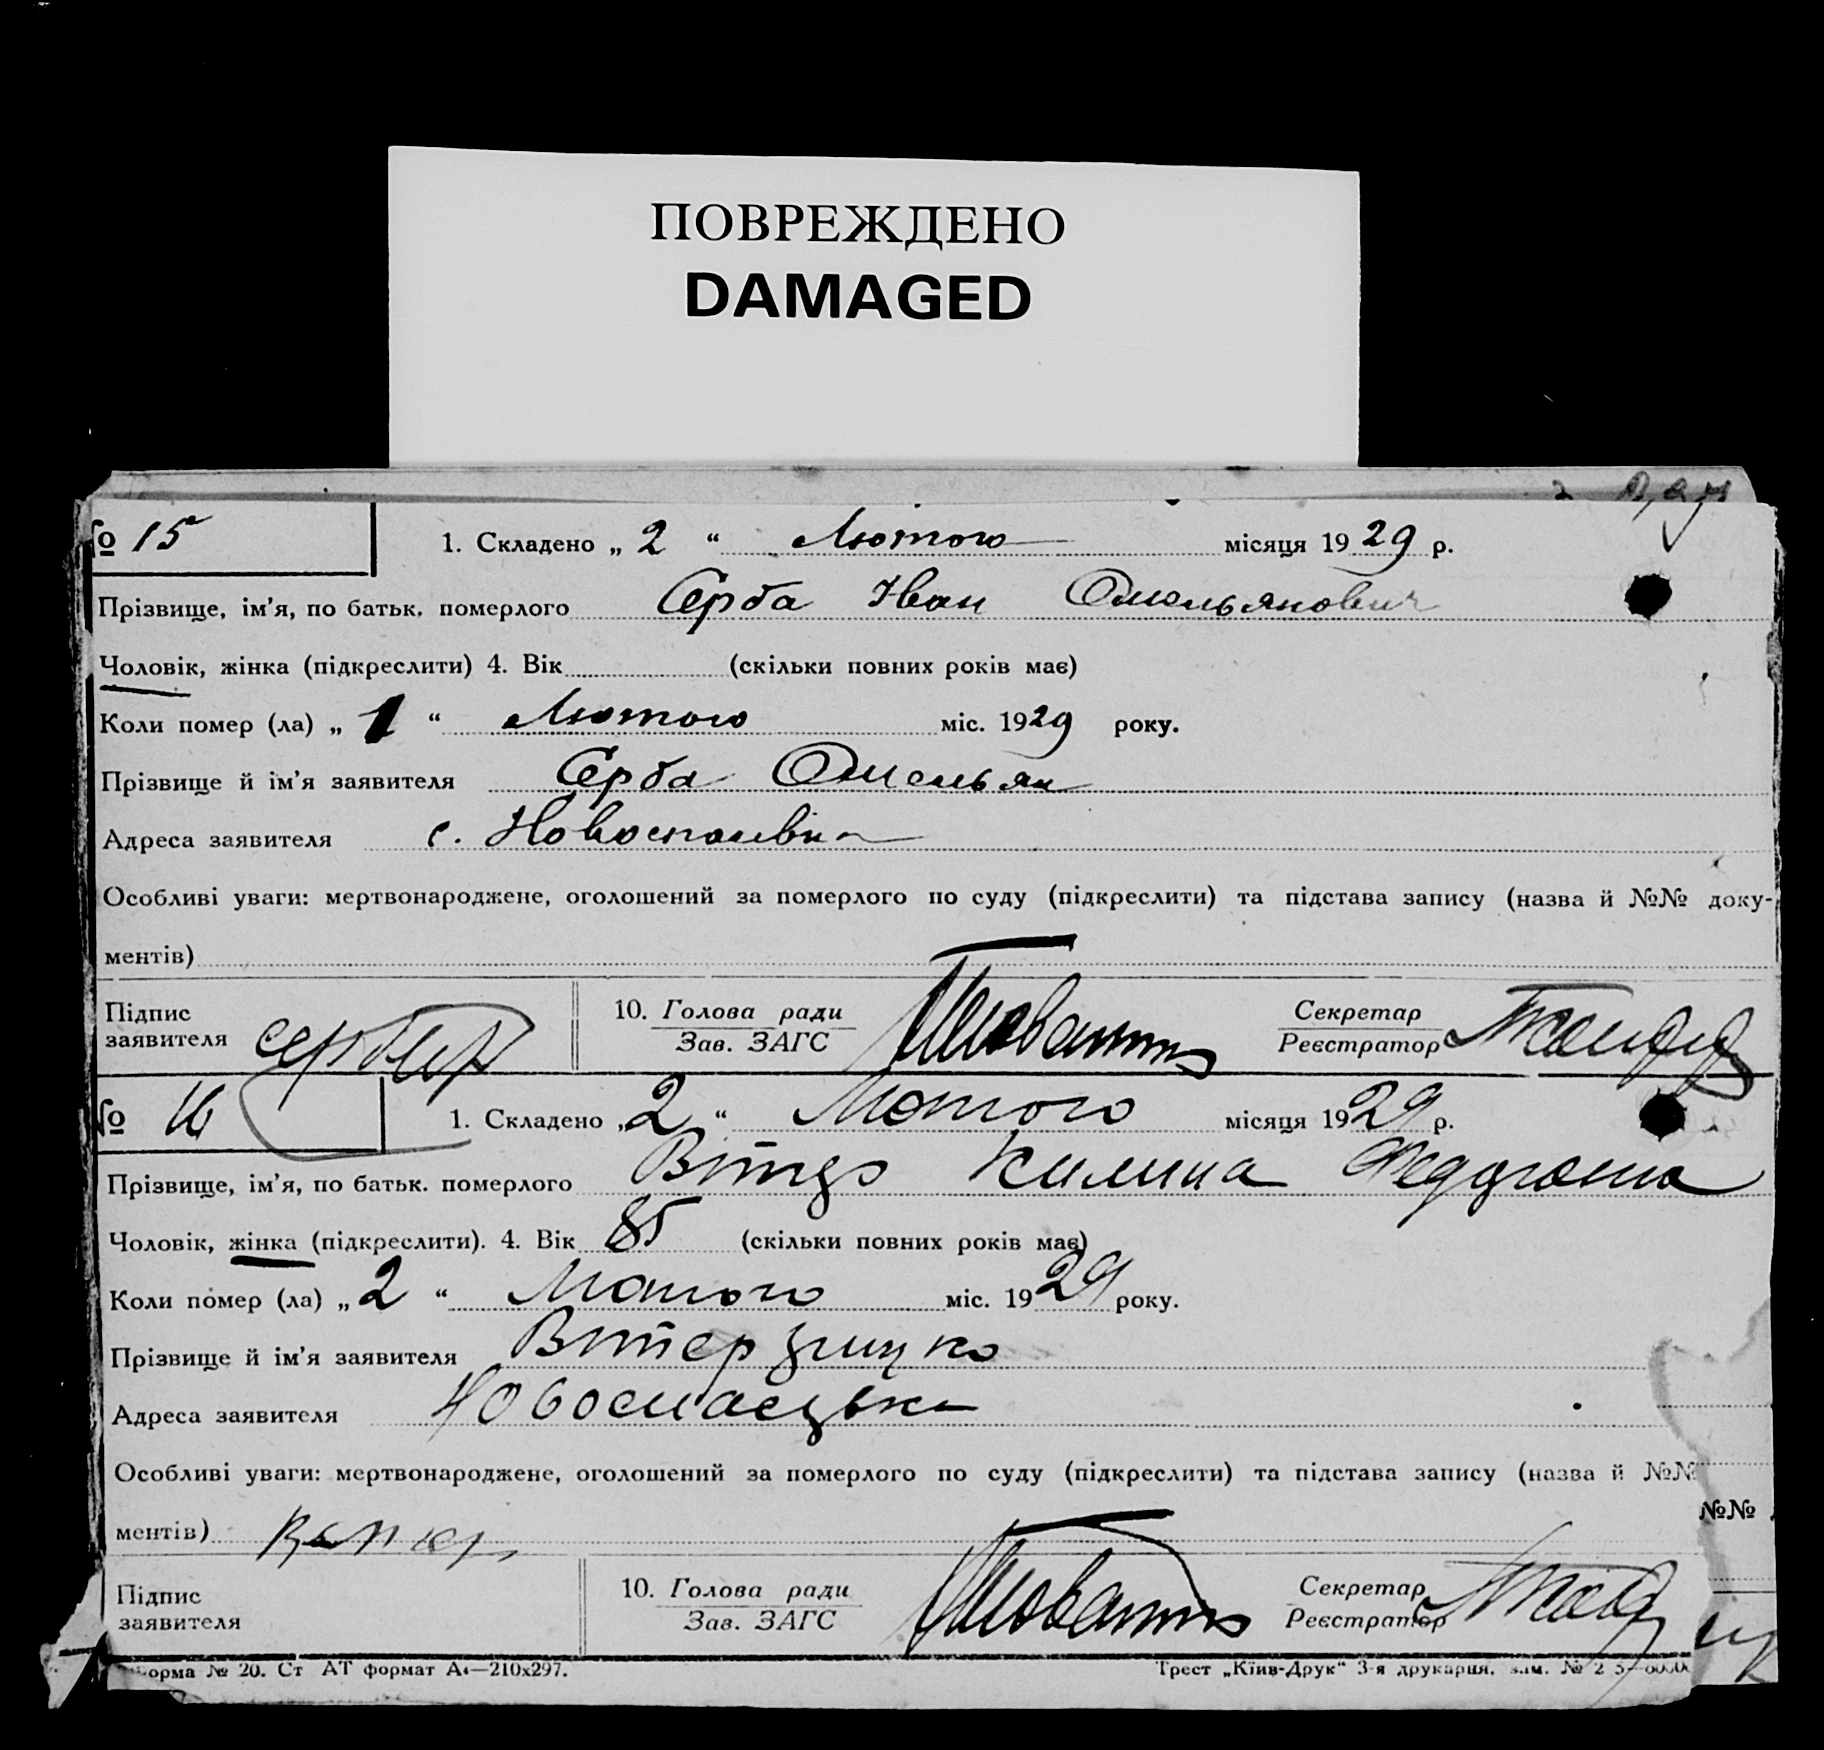 ПОВРЕЖДЕНО
DAMAGED
№ 15
1. Складено „ 2 “ Лютого місяця 1929 р.
Прізвище, ім’я, по батьк. померлого Серба Иван Омельянович
Чоловік, жінка (підкреслити) 4. Вік (скільки повних років має)
Коли помер (ла) „ 1 “ Лютого міс. 1929 року.
Прізвище й ім’я заявителя Серба Омельян
Адреса заявителя с. Новоспасівка
Особливі уваги: мертвонароджене, оголошений за померлого по суду (підкреслити) та підстава запису (назва й №№ доку-
ментів)
Підпис заявителя
10. Голова ради
Зав. ЗАГС
Секретар
Реєстратор
№ 16
1. Складено „ 2 “ Лютого місяця 1929 р.
Прізвище, ім’я, по батьк. померлого Килина
Чоловік, жінка (підкреслити). 4. Вік 85 (скільки повних років має)
Коли помер (ла) „ 2 “ Лютого міс. 1929 року.
Прізвище й ім’я заявителя
Адреса заявителя
Особливі уваги: мертвонароджене, оголошений за померлого по суду (підкреслити) та підстава запису (назва й №№
№№
ментів)
Підпис заявителя
10. Голова ради
Зав. ЗАГС
Секретар
Реєстратор
форма № 20. Ст АТ формат А4—210х297.
Трест „Київ-Друк“ 3-я друкарня, зам. №